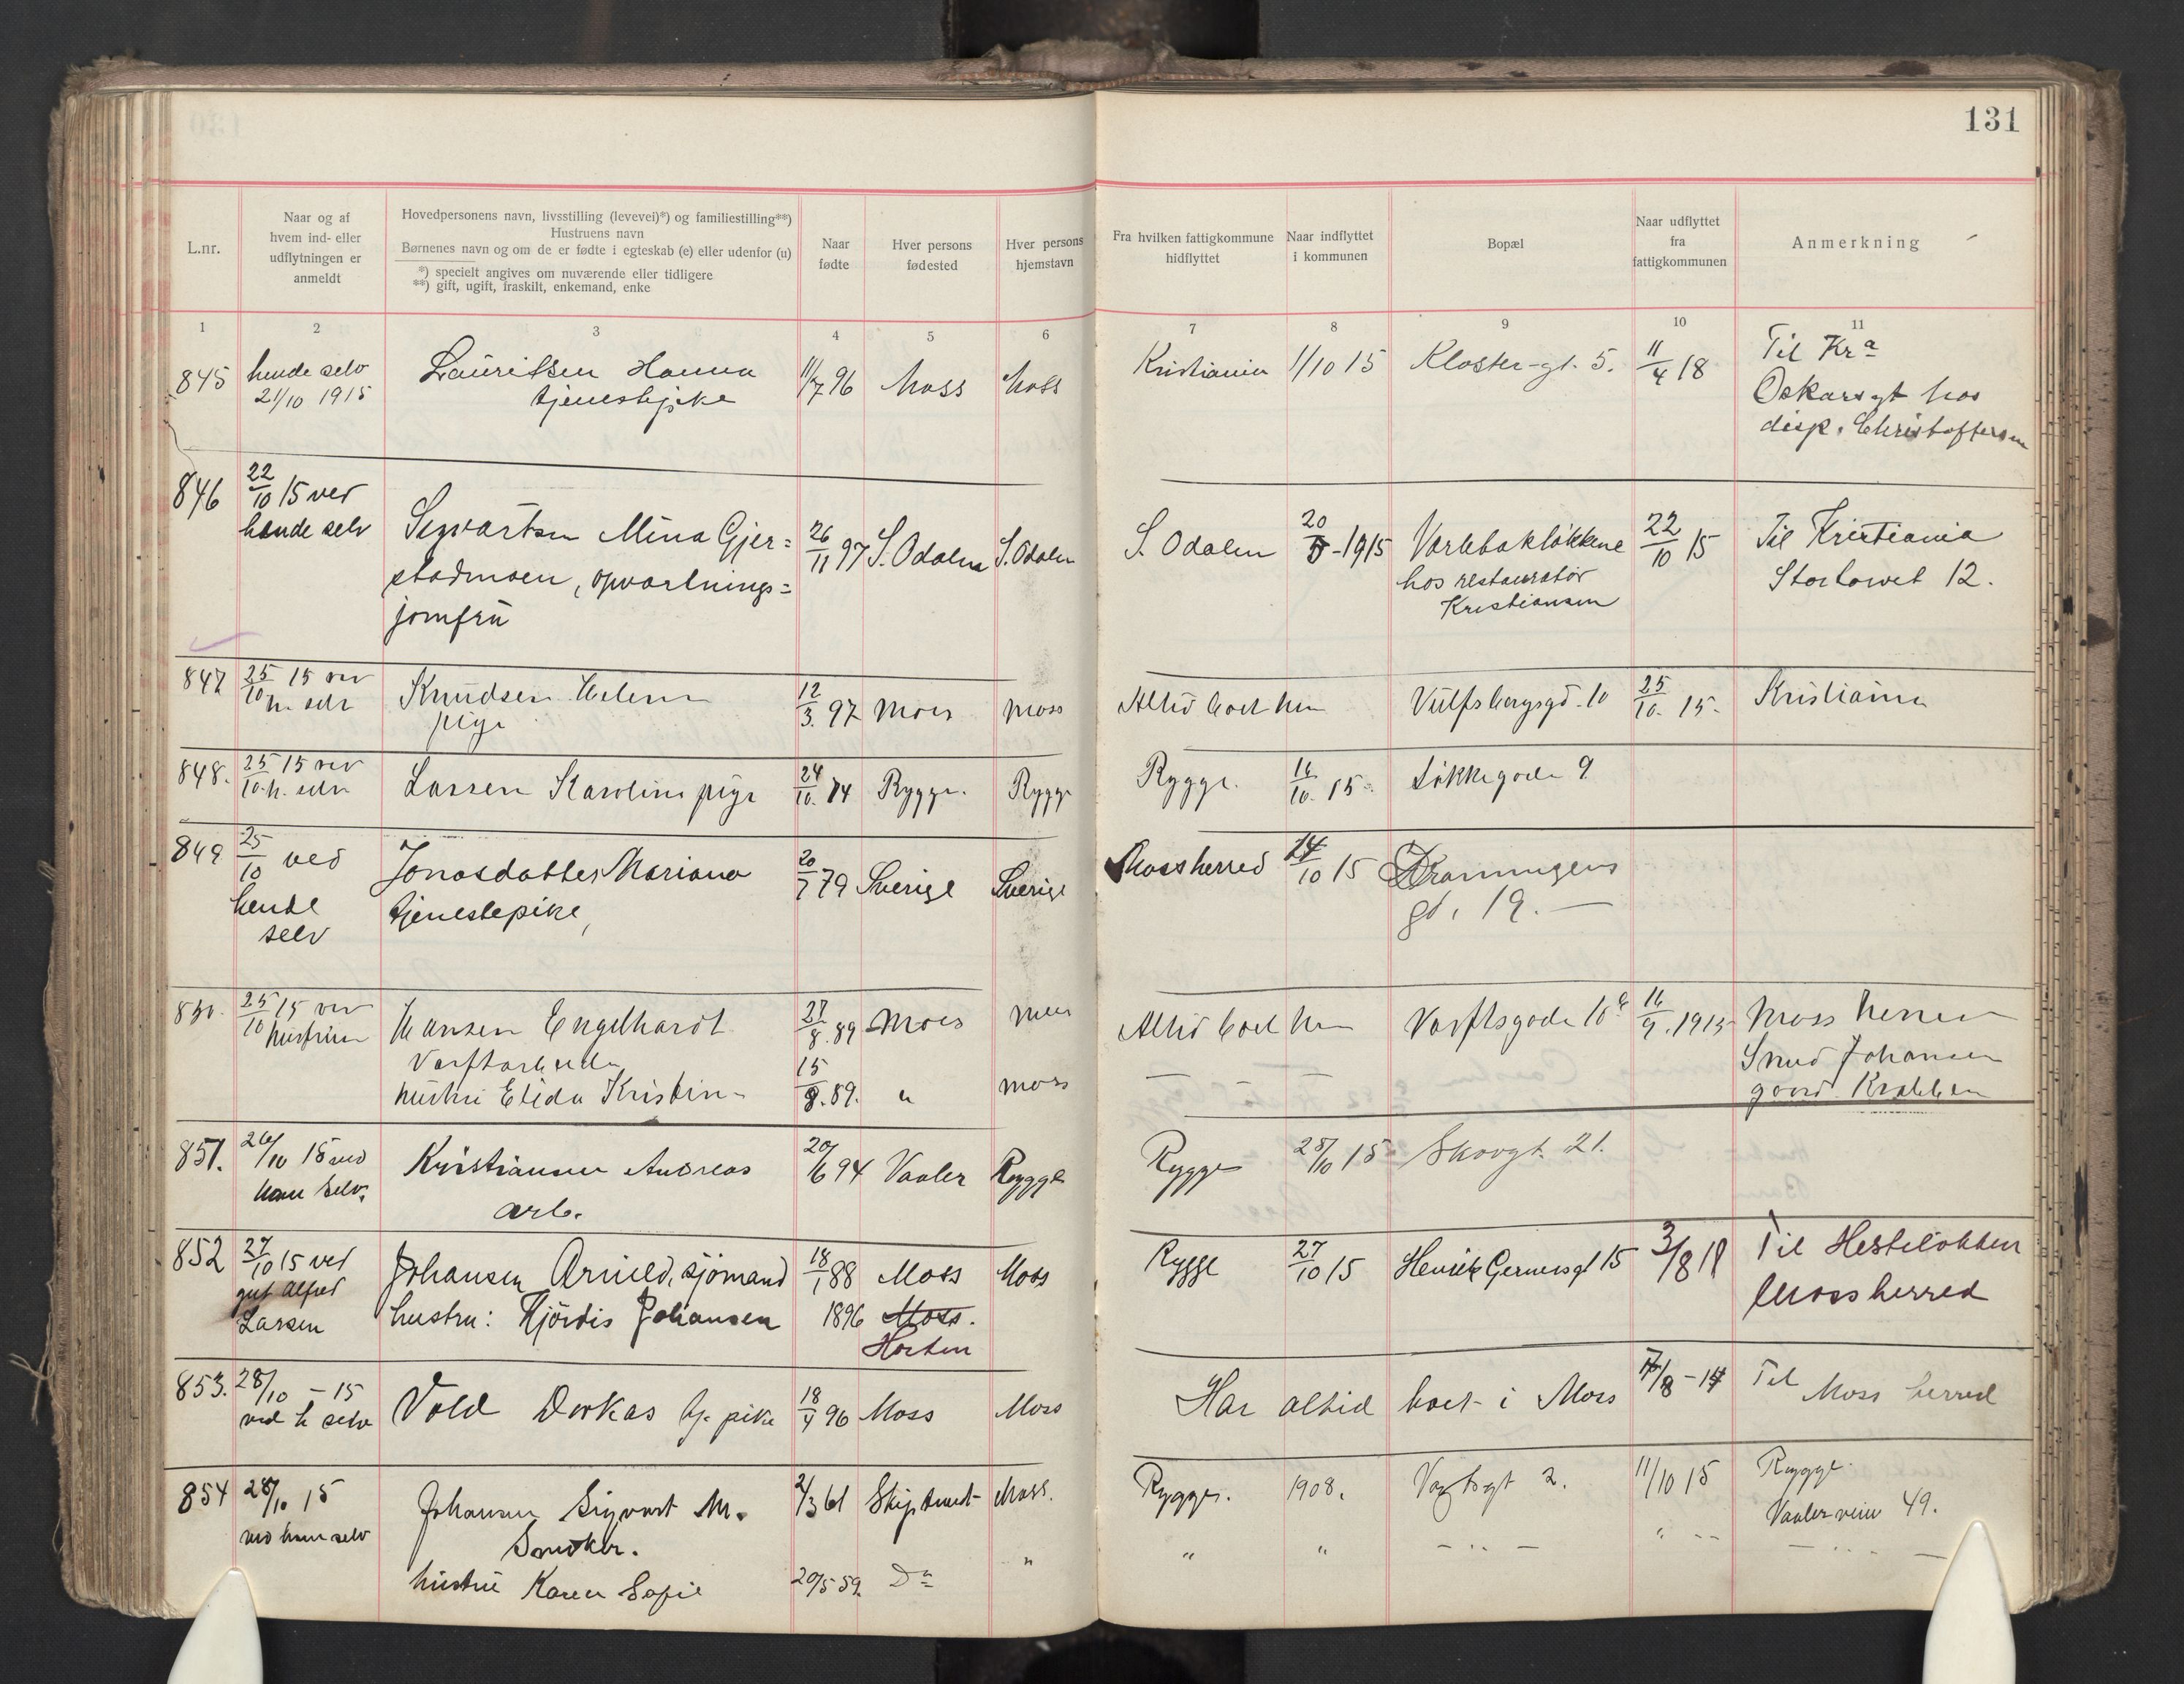 131
L.nr.
Naar og af
hvem ind- eller
udflytningen er
anmeldt
Hovedpersonens navn, livsstilling (levevei)*) og familiestilling**)
Hustruens navn
Børnenes navn og om de er fødte i egteskab (e) eller udenfor (u)
*) specielt angives om nuværende eller tidligere
**) gift, ugift, fraskilt, enkemand, enke
Naar
fødte
Hver persons
fødested
Hver persons
hjemstavn
Fra hvilken fattigkommune
hidflyttet
Naar indflyttet
i kommunen
Bopæl
Naar udflyttet
fra
fattigkommunen
Anmerkning
1 2 3 4 5 6 7 8 9 10 11
845 hende selv Lauritsen Hanna 11/7 96 Moss Moss Kristiania 1/10 15 Kloster-gt. 5. 11/4 18 Til Kra
21/10 1915 tjenestepike Oskarsgt hos
disp. Christoffersen
846 22/10 15 ved Mina Gjer= 26/11 97 S. Odalen S. Odalen S. Odalen 20 -1915 Varlebakløkkene 22/10 15 Til Kristiania
hende selv stadmoen, opvartnings= hos restauratør Stortorvet 12.
jomfru Kristiansen
847 25/10 15 ved Knudsen Helena 12/3. 97 Moss Moss Altid boet her Vulfsbergsgd. 10 25/10. 15. Kristiania
h. selv pige
848. 25/10 15 ved Larsen Karoline pige 24/10. Rygge. Rygge Rygge. 16/10. 15. Løkkegaden 9
h. selv
849 25/10 ved Jonasdatter Mariana 20/7 79 Sverige Sverige Moss herred 14/10 15 Dronningens
hende tjenestepike, gt. 19.
selv
850. 25/10 15 ved Hansen Engelhardt 27/8. 89 Moss Moss Altid boet her Varftsgaden 10 16/9. 1915 Moss herred
hustruen Varftarbeider Smed Johansen
hustru Elida Kristine 15/8. 89. " Moss gaard Krabben
851. 26/10 15 ved Kristiansen Andreas 20/6 94 Vaaler Rygge Rygge 28/10 15 Skovgt. 21.
ham selv. arb.
852 27/10 15 ved Johansen Arnild, sjömand 18/1 88 Moss Moss Rygge 27/10 15 Henrik Gernersgt 15 3/8 18 Til Hesteløkken
gut Alfred Moss herred
Larsen hustru: Hjördis Johansen 1896 Moss.
Horten
853. 28/10 - 15 Vold Dorkas tj. pike 18/4 96 Moss Moss Har altid boet i Moss Til Moss herred
ved h selv
854 28/10 15 Johansen Sigvart M. 2/3 61 Skiptvedt Moss. Rygge. 1908. Vogtsgt 2. 11/10 15 Rygge.
ved ham selv Snedker. Vaalerveien 49.
hustru Karen Sofie 20/5 59. Do " " " - " - " - -